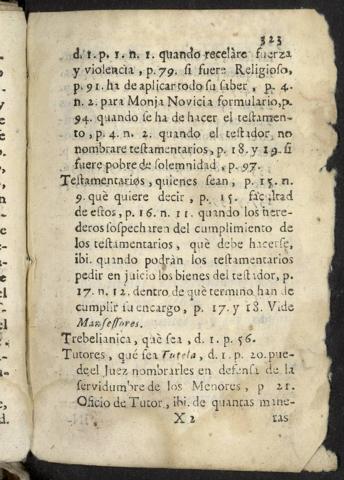 323
d. 1. p. 1. n. 1. quando recelàre fuerza
y violencia, p. 79. si fuere Religioso,
p. 91. ha de aplicar todo su saber, p. 4.
n. 2. para Monja Novicia formulario, p.
94. quando se ha de hacer el testamen-
to, p. 4. n. 2. quando el testador no
nombrare testamentarios, p. 18. y 19. si
fuere pobre de solemnidad, p. 97.
Testamentarios, quienes sean, p. 15. n.
9. què quiere decir, p. 15. facultad
de estos, p. 16. n. 11. quando los here-
deros sospecharen del cumplimiento de
los testamentarios, què debe hacerse,
ibi. quando podràn los testamentarios
pedir en juicio los bienes del testador, p.
17. n. 12. dentro de què termino han de
cumplir su encargo, p. 17. y 18. Vide
Mansessores.
Trebelianica, què sea, d. 1. p. 56.
Tutores, què sea Tutela, d. 1. p. 20. pue-
de el Juez nombrarles en defensa de la
servidumbre de los Menores, p 21.
Oficio de Tutor, ibi. de quantas mane-
X 2 ras